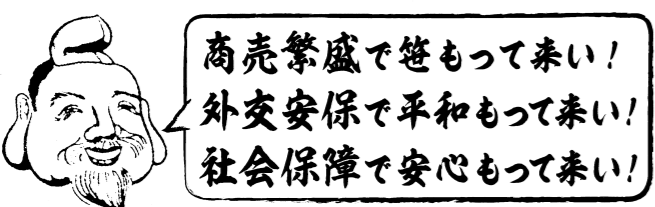 商売繁盛で笹もって来い！
外交安保で平和もって来い！
社会保障で安心もって来い！